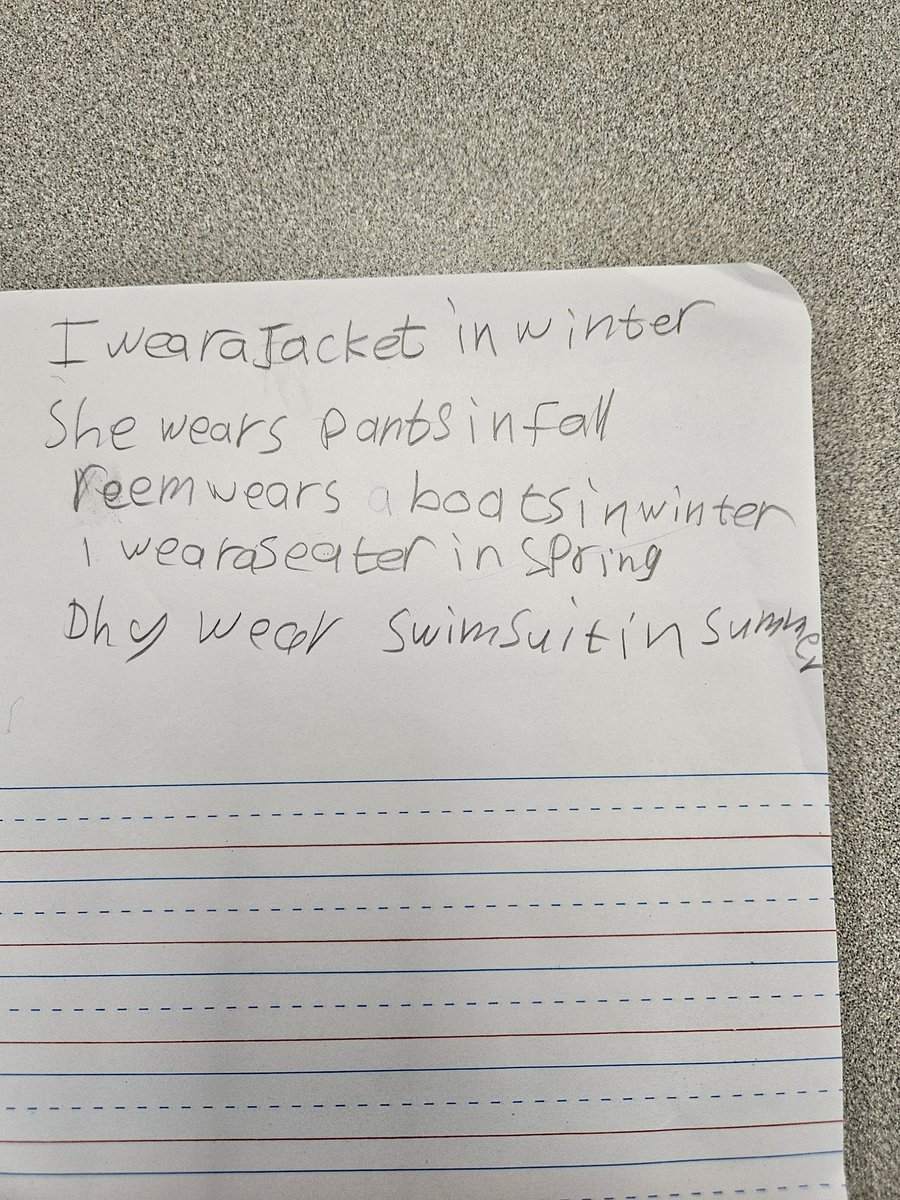 I wear a Jacket in winter
She wears pants in fall
reem wears a boats in winter
I wear a seater in spring
Dhy wear swimsuit in summer